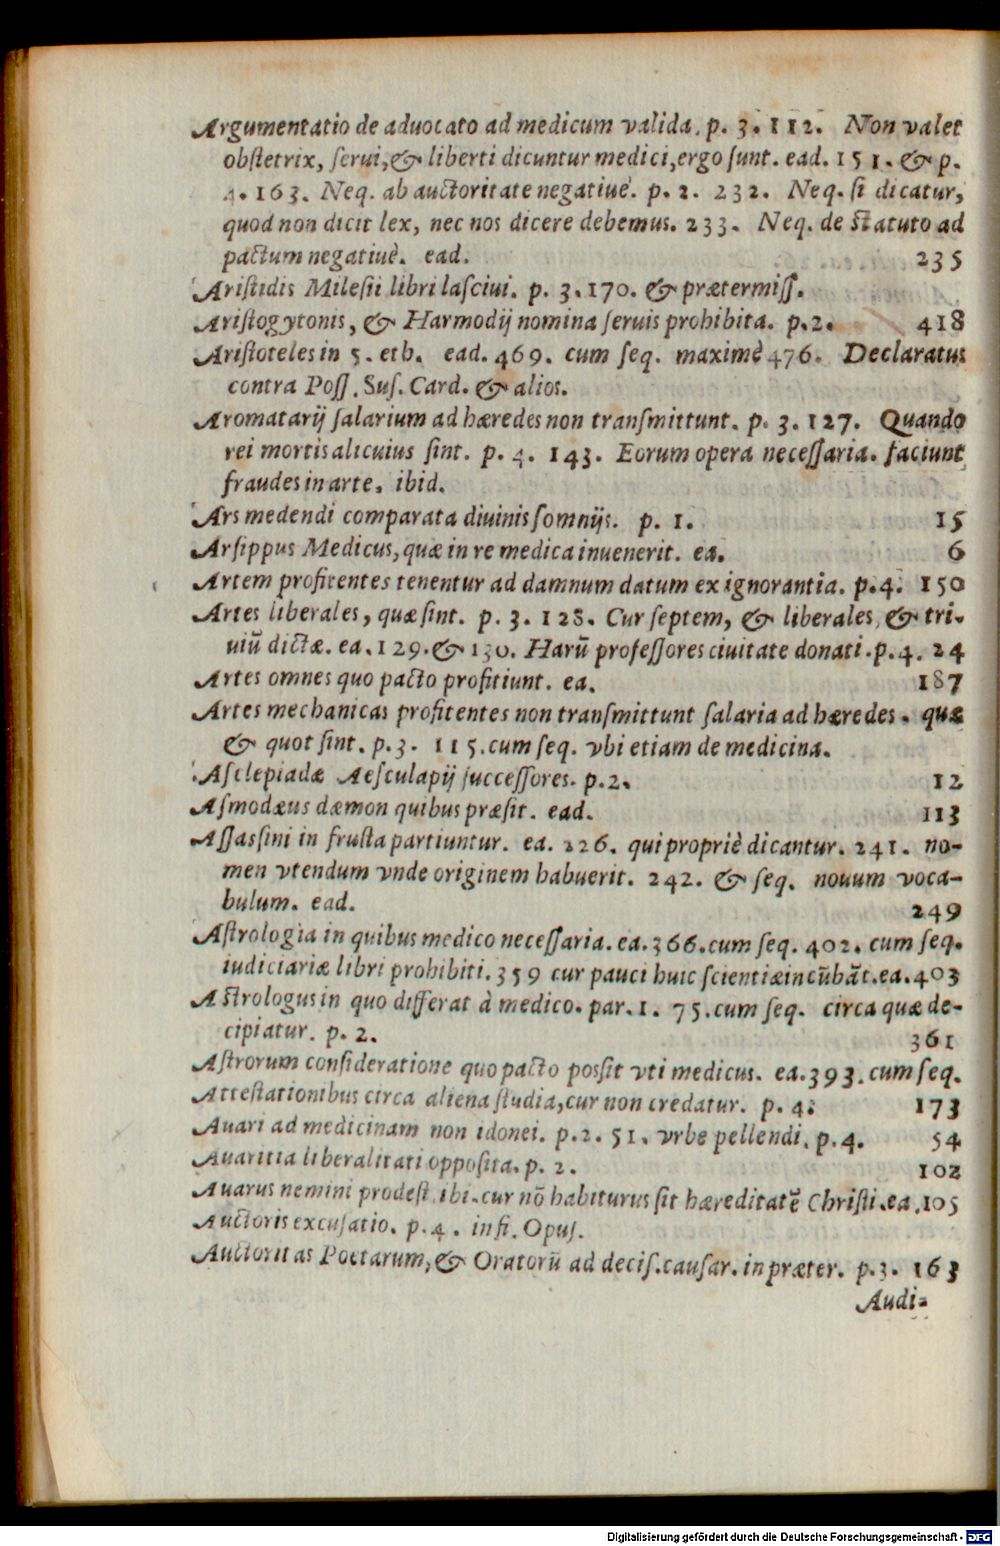 Argumentatio de aduocato ad medicum valida. p. 3. 112. Non valet
obſtetrix, ſerui, & liberti dicuntur medici, ergo ſunt. ead. 151. & p.
4. 163. Neq. ab auctoritate negatiuè. p. 2. 232. Neq. ſi dicatur,
quod non dicit lex, nec nos dicere debemus. 233. Neq. de ſtatuto ad
pactum negatiuè. ead. 235
Ariſtidis Mileſii libri laſciui. p. 3. 170. & prætermiſſ.
Ariſtogytonis, & Harmodij nomina ſeruis prohibita. p. 2. 418
Ariſtoteles in 5. eth. ead. 469. cum ſeq. maximè 476. Declaratus
contra Poſſ. Suſ. Card. & alios.
Aromatarij ſalarium ad hæredes non tranſmittunt. p. 3. 127. Quando
rei mortis alicuius ſint. p. 4. 143. Eorum opera neceſſaria. faciunt
fraudes in arte. ibid.
Ars medendi comparata diuinis ſomnijs. p. 1. 15
Arſippus Medicus, quæ in re medica inuenerit. ea. 6
Artem profitentes tenentur ad damnum datum ex ignorantia. p. 4. 150
Artes liberales, quæ ſint. p. 3. 128. Cur ſeptem, & liberales, & tri-
uiũ dictæ. ea. 129. & 130. Harũ profeſſores ciuitate donati. p. 4. 24
Artes omnes quo pacto profitiunt. ea. 187
Artes mechanicas profitentes non tranſmittunt ſalaria ad hæredes. quæ
& quot ſint. p. 3. 115. cum ſeq. vbi etiam de medicina.
Aſclepiadæ Aeſculapij ſucceſſores. p. 2. 12
Aſmodæus dæmon quibus præſit. ead. 113
Aſſaſſini in fruſta partiuntur. ea. 226. qui propriè dicantur. 241. no-
men vtendum vnde originem habuerit. 242. & ſeq. nouum voca-
bulum. ead. 249
Aſtrologia in quibus medico neceſſaria. ea. 366. cum ſeq. 402. cum ſeq.
iudiciariæ libri prohibiti. 359 cur pauci huic ſcientiæ incũbãt. ea. 403
Aſtrologus in quo differat à medico. par. 1. 75. cum ſeq. circa quæ de-
cipiatur. p. 2. 361
Aſtrorum conſideratione quo pacto poſſit vti medicus. ea. 393. cum ſeq.
Atteſtationibus circa aliena ſtudia, cur non credatur. p. 4. 173
Auari ad medicinam non idonei. p. 2. 51. vrbe pellendi. p. 4. 54
Auaritia liberalitati oppoſita. p. 2. 102
Auarus nemini prodeſt. ibi. cur nõ habiturus ſit hæreditatẽ Chriſti. ea. 105
Auctoris excuſatio. p. 4. in fi. Opuſ.
Auctoritas Poetarum, & Oratorũ ad deciſ. cauſar. in præter. p. 3. 163
Audi-
Digitalisierung gefördert durch die Deutsche Forschungsgemeinschaft - DFG